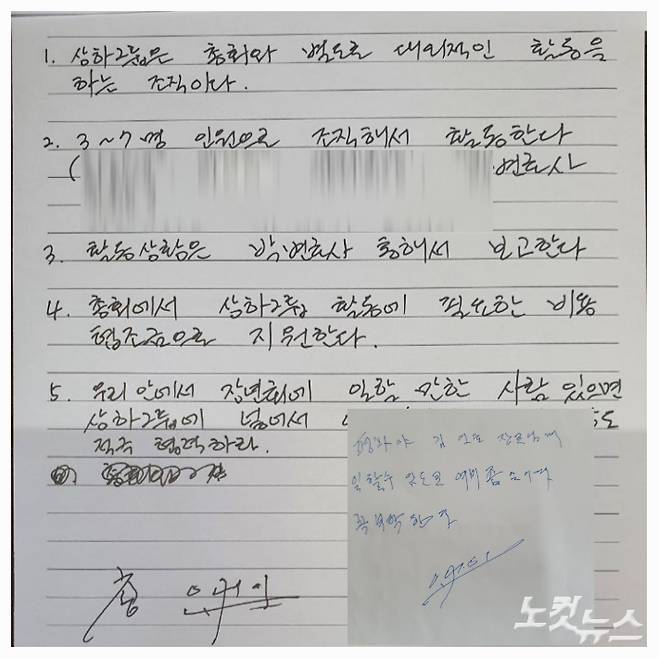 1. 상하그룹은 총회와 별도로 대외적인 활동을
하는 조직이다.
2. 3~7명 인원으로 조직해서 활동한다
( 변호사
3. 활동상황은 박변호사 통해서 보고한다
4. 총회에서 상하그룹 활동에 필요한 비용
협조금으로 지원한다.
5. 우리 안에서 장년회에 일할 만한 사람 있으면
상하그룹에 넣어서 도
적극 협력하라.
총
일할수 있도록
꼭 부탁한다
노컷뉴스